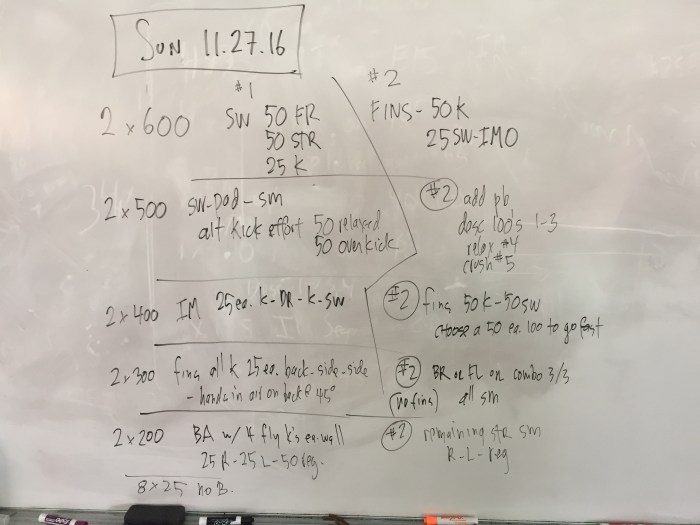 SUN 11.27.16
#1
2 x 600 SW 50 FR
50 STR
25 K
#2
FINS - 50 K
25 SW-IMO
2 x 500 SW-POD-SM
alt kick effort 50 relaxed
50 overkick
#2 add pb
desc 100's 1-3
relax #4
crush #5
2 x 400 IM 25 ea. K-DR-K-SW
#2 fins 50 K - 50 SW
choose a 50 ea. 100 to go fast
2 x 300 fins all K 25 ea. back-side-side
- hands in air on back @ 45°
#2 BR or FL on combo 3/3
(no fins) all sm
2 x 200 BA w/ 4 fly K's ea. wall
25 R - 25 L - 50 reg.
#2 remaining str sm
R-L-reg
8 x 25 no B.